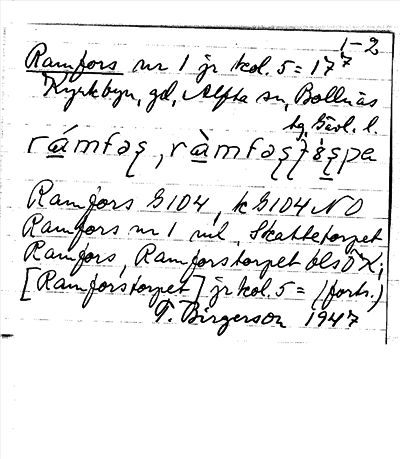 1-2
Ramfors nr 1 jr kol. 5 = 17⁷
Kyrkbyn, gd, Alfta sn, Bollnäs
tg, Gävl. l.
Ramfors G104, k G104 NO
Ramfors nr 1 uil, Skattetorpet
Ramfors, Ramforstorpet bls Ö X;
[Ramforstorpet] jr kol. 5 = (forts.)
T. Birgerson 1947